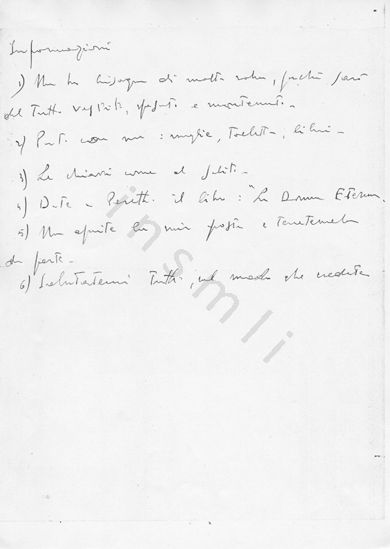 Informazioni
1) Non ho bisogno di molta roba, perché sarò
del tutto vestito, spesato e mantenuto.
2) Porto con me : maglie, toeletta, libri.
3) Le chiavi come al solito.
4) Date a Peretti il libro : "La Donna Eterna.
5) Non aprite la mia posta e tenetemela
da parte.
6) Salutatemi tutti, nel modo che credete
insmli